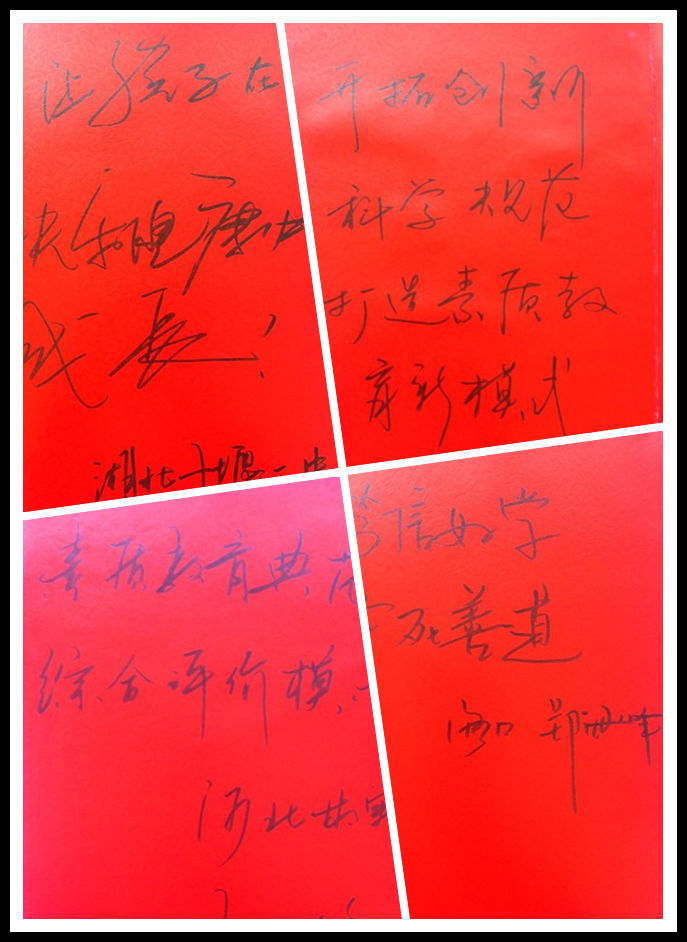 让孩子在
快乐健康中
成长!
湖北十堰一中
开拓创新
科学规范
打造素质教
育新模式
素质教育典范
综合评价模
河北
笃信好学
守死善道
海口 郑